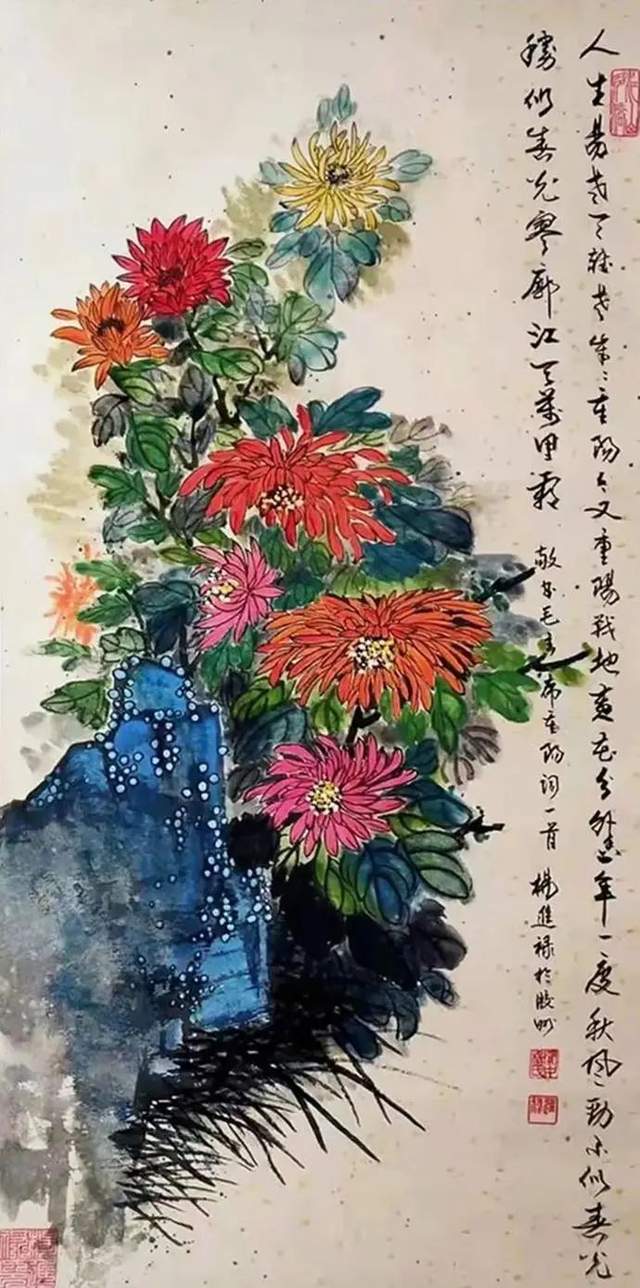 人生易老天难老岁岁重阳今又重陽战地黄花分外香一年一度秋风劲不似春光
勝似春光寥廓江天萬里霜
敬书毛主席重阳词一首
楊進禄於胶州